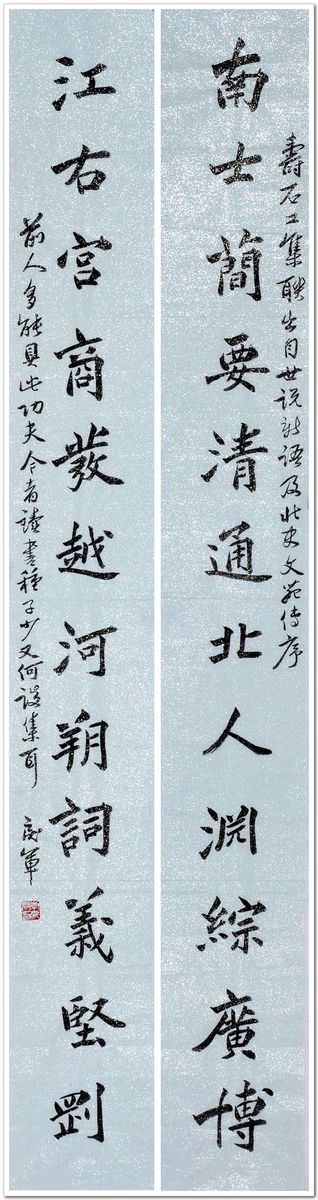 壽石工集聯出自世说新语及北史文苑传序
南士簡要清通北人渊綜廣博
江右宮商發越河朔詞義堅剛
前人多能具此功夫今者读書種子少又何談集耳